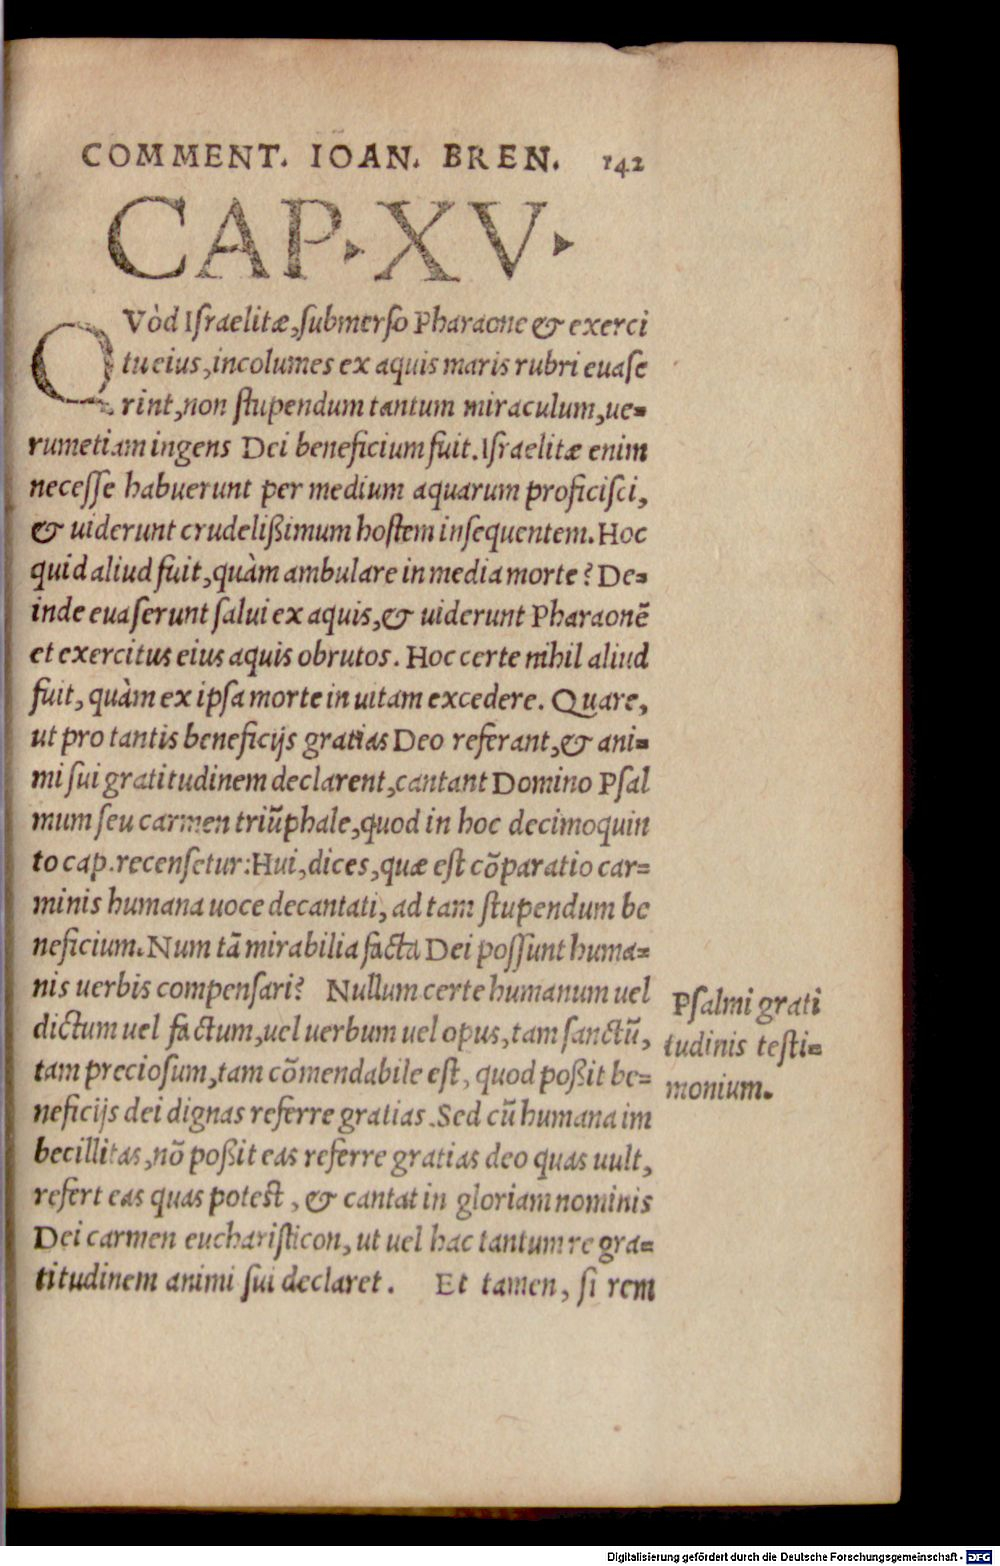 COMMENT. IOAN. BREN. 142
CAP. XV.
QVòd Israelitæ, submerso Pharaone & exerci
tu eius, incolumes ex aquis maris rubri euase
rint, non stupendum tantum miraculum, ue=
rumetiam ingens Dei beneficium fuit. Israelitæ enim
necesse habuerunt per medium aquarum proficisci,
& uiderunt crudelißimum hostem insequentem. Hoc
quid aliud fuit, quàm ambulare in media morte? De=
inde euaserunt salui ex aquis, & uiderunt Pharaonẽ
et exercitus eius aquis obrutos. Hoc certe nihil aliud
fuit, quàm ex ipsa morte in uitam excedere. Quare,
ut pro tantis beneficijs gratias Deo referant, & ani=
mi sui gratitudinem declarent, cantant Domino Psal
mum seu carmen triũphale, quod in hoc decimoquin
to cap. recensetur: Hui, dices, quæ est cõparatio car=
minis humana uoce decantati, ad tam stupendum be
neficium. Num tã mirabilia facta Dei possunt huma=
nis uerbis compensari? Nullum certe humanum uel
dictum uel factum, uel uerbum uel opus, tam sanctũ,
tam preciosum, tam cõmendabile est, quod poßit be=
neficijs dei dignas referre gratias. Sed cũ humana im
becillitas, nõ poßit eas referre gratias deo quas uult,
refert eas quas potest, & cantat in gloriam nominis
Dei carmen eucharisticon, ut uel hac tantum re gra=
titudinem animi sui declaret. Et tamen, si rem
Psalmi grati
tudinis testi=
monium.
Digitalisierung gefördert durch die Deutsche Forschungsgemeinschaft - DFG